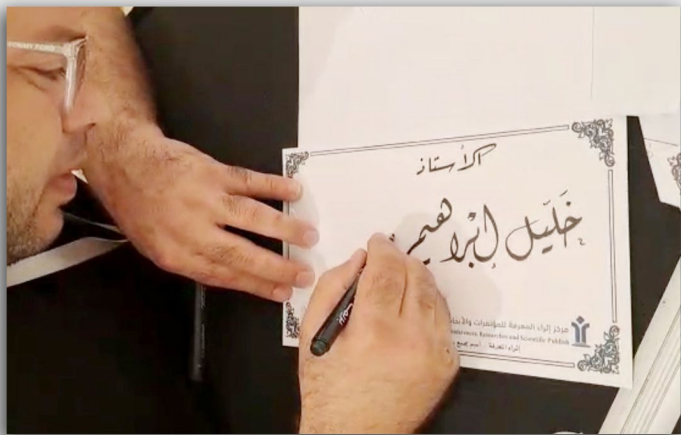 الأستاذ
خَلِيل إبْراهيم
مركز إثراء المعرفة للمؤتمرات والأبحاث
Conferences, Researches and Scientific Publish
إثراء المعرفة